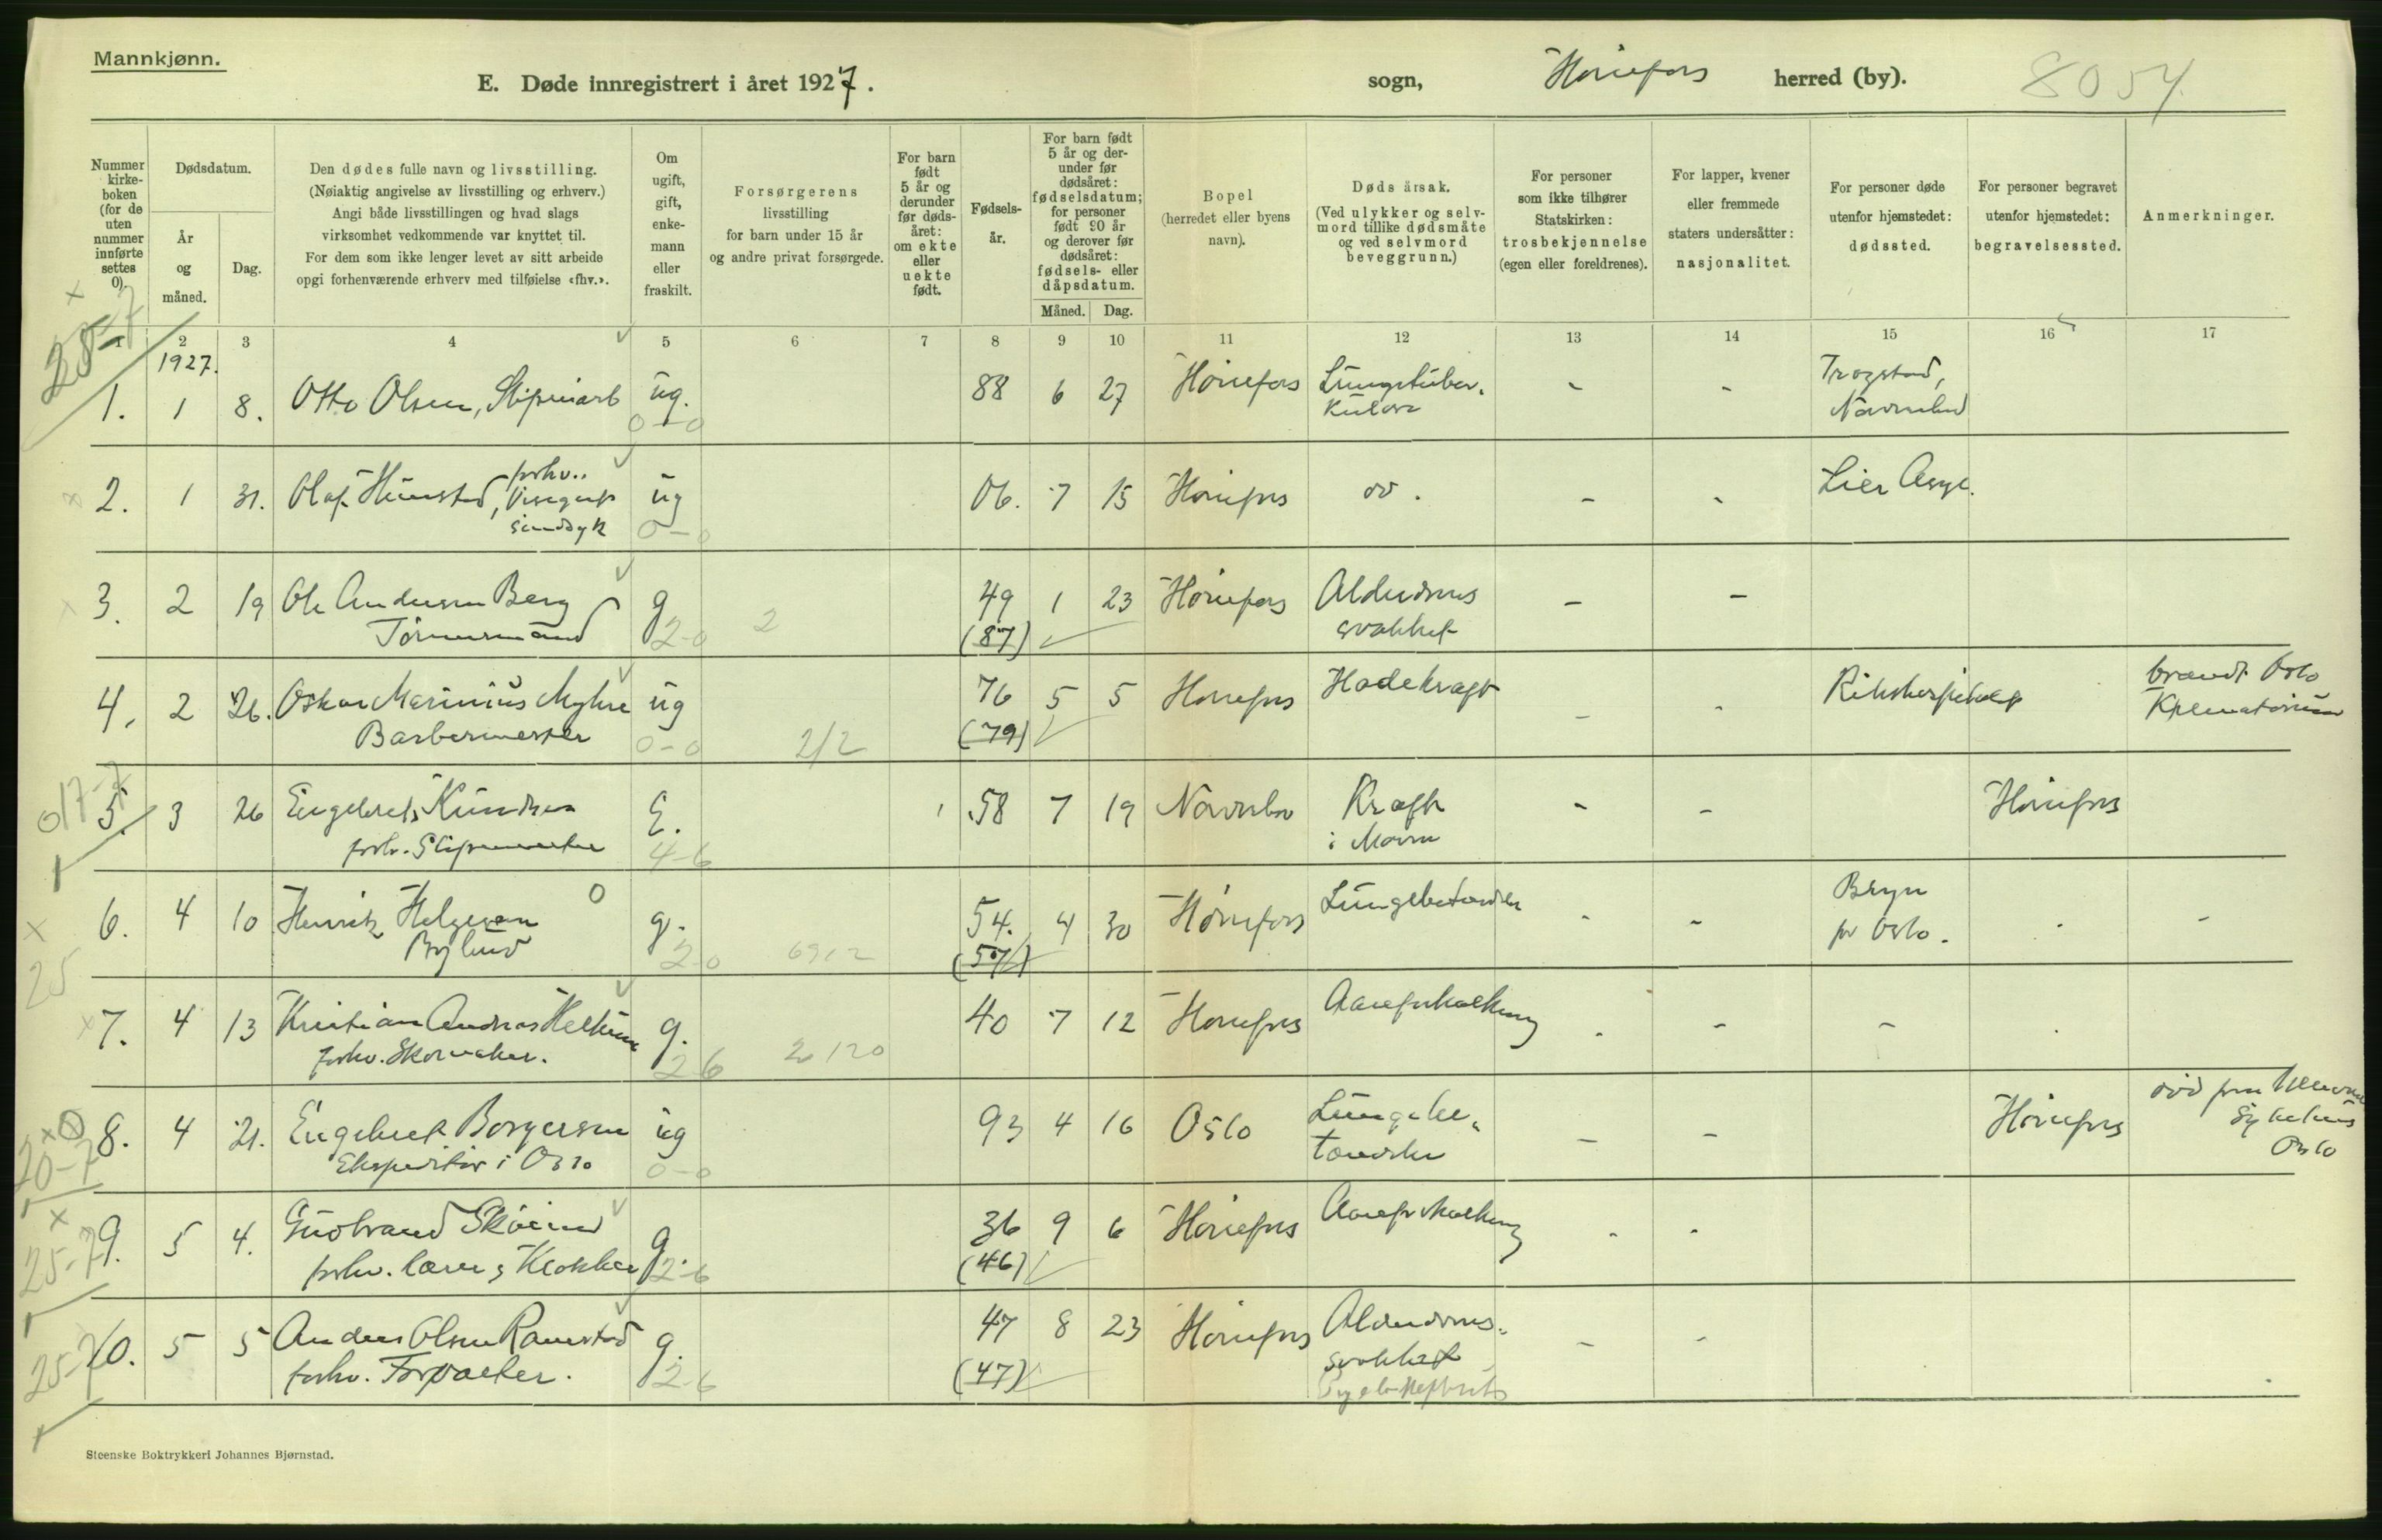 Mannkjønn.
E. Døde innregistrert i året 1927.
sogn, Hønefoss herred (by).
8054
Nummer kirke-boken (for de uten nummer innførte settes 0).
Dødsdatum.
År og måned.
Dag.
Den dødes fulle navn og livsstilling.
(Nøiaktig angivelse av livsstilling og erhverv.)
Angi både livsstillingen og hvad slags
virksomhet vedkommende var knyttet til.
For dem som ikke lenger levet av sitt arbeide
opgi forhenværende erhverv med tilføielse «fhv.».
Om ugift, gift, enke-mann eller fraskilt.
Forsørgerens
livsstilling
for barn under 15 år
og andre privat forsørgede.
For barn født 5 år og derunder før døds-året: om ekte eller uekte født.
Fødsels-år.
For barn født 5 år og der-under før dødsåret: fødselsdatum; for personer født 90 år og derover før dødsåret: fødsels- eller dåpsdatum.
Måned. Dag.
Bopel
(herredet eller byens navn).
Døds årsak.
(Ved ulykker og selv-mord tillike dødsmåte og ved selvmord beveggrunn.)
For personer som ikke tilhører Statskirken: trosbekjennelse (egen eller foreldrenes).
For lapper, kvener eller fremmede staters undersåtter: nasjonalitet.
For personer døde utenfor hjemstedet: dødssted.
For personer begravet utenfor hjemstedet: begravelsessted.
Anmerkninger.
1 2 3 4 5 6 7 8 9 10 11 12 13 14 15 16 17
1927.
1. 1 8. Otto Olsen, Sliperiarb ug. 88 6 27 Hønefoss Lungetuber- - - Trøgstad,
0-0 kulose Norderhov
2. 1 31. Olaf Hunstad, forhv. ug 06. 7 15 Hønefoss do. - - Lier Asyl.
Visergut
sindsyk 0-0
3. 2 19 Ole Andersen Berg g 49 1 23 Hønefoss Alderdoms - -
Tømmermand 2-0 2 (87) svakhet
4. 2 26. Oskar Marinius Myhre ug 76 5 5 Hønefoss Halsekræft - - Rikshospitalet brændt Oslo
Barbermester 0-0 2/2 (79) Krematorium
5. 3 26 Engebret Knudsen E. 58 7 19 Norderhov Kræft - - Hønefoss
forh. Slipemester 4-6 i Maven
6. 4 10 Henrik Helgesen 0 g. 54. 4 30 Hønefoss Lungebetændelse - - Bryn
Bylund 2-0 (57) pr Oslo. -
25
7. 4 13 Kristian Andreas g. 40 7 12 Hønefoss Aareforkalkning - - -
forhv. Skomaker. 2-6 2 120
8. 4 21. Engebret Borgersen ug 93 4 16 Oslo Lungebe- - - Hønefoss død paa Ullevaal
Ekspeditør i Oslo 0-0 tændelse Sykehus
Oslo
9. 5 4. Gudbrand g. 36 9 6 Hønefoss Aareforkalkning - -
forhv. lærer & Klokker 2-6 (46)
10. 5 5 Anders Olsen Ramstad g. 47 8 23 Hønefoss Alderdoms- - -
forhv. Forvalter. 2-6 (47) svakhet
Steenske Boktrykkeri Johannes Bjørnstad.